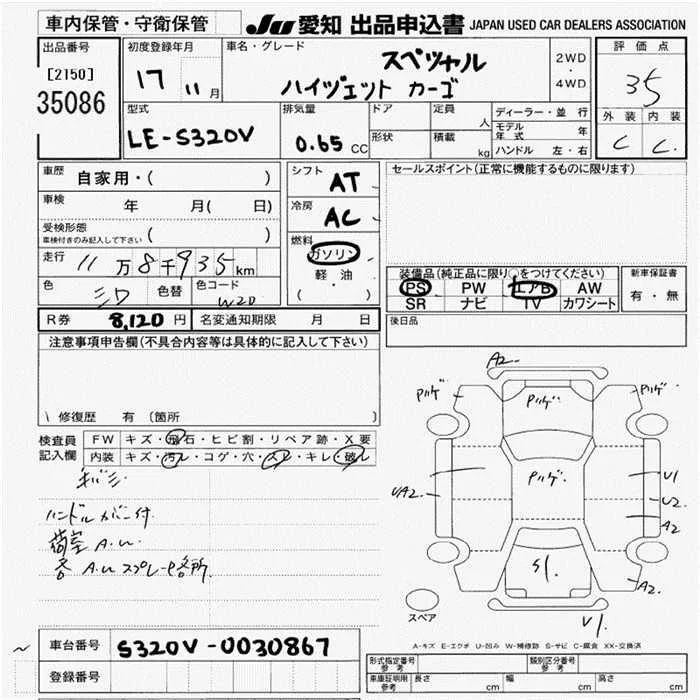 車内保管・守衛保管
JU 愛知 出品申込書 JAPAN USED CAR DEALERS ASSOCIATION
出品番号
[2150]
35086
初度登録年月
17 11月
車名・グレード
スペツャル
ハイヅェット カーゴ
2WD
・
4WD
評価点
35
外装 内装
C C
型式
LE-S320V
排気量
0.65 CC
ドア
形状
定員
人
積載
kg
ディーラー・並行
モデル年式 年
ハンドル 左・右
車歴 自家用・( )
車検 年 月( 日)
受検形態
車検付きのみ記入して下さい ( )
走行 11万8千935km
色 シロ 色替 色コード W20
シフト AT
冷房 AC
燃料
ガソリン
軽・油
( )
セールスポイント(正常に機能するものに限ります)
装備品(純正品に限り○をつけてください)
PS PW エアB AW
SR ナビ TV カワシート
新車保証書
有・無
後日品
R券 8,120円 名変通知期限 月 日
注意事項申告欄(不具合内容等は具体的に記入して下さい)
修復歴 有 (箇所 )
検査員
記入欄
FW キズ・飛石・ヒビ割・リペア跡・X要
内装 キズ・汚レ・コゲ・穴・スレ・キレ・破レ
キバミ
ハンドルカバー付
荷室 A.U.
各 A.U スプレー色各所
A2
Pハゲ
Pハゲ
Pハゲ
Pハゲ
UA2
U1
U2
A2
S1
A2
U1
スペア
A-キズ E-エクボ U-凹み W-補修跡 S-サビ C-腐食 XX-交換済
車台番号 S320V-0030867
登録番号
型式指定番号
参考
類別区分番号
参考
車庫証明用
参考
長さ cm 幅 cm 高さ cm